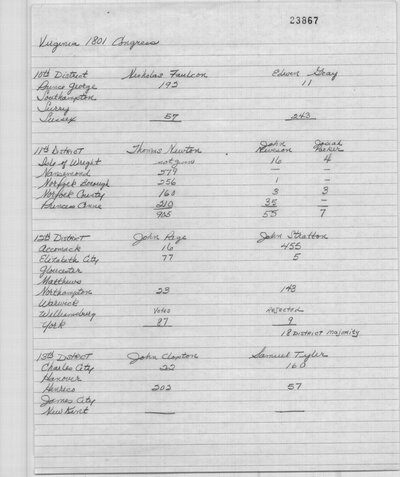 23867
Virginia 1801 Congress
10th District Nicholas Faulcon Edwin Gray
Prince George 192 11
Southampton
Surry
Sussex 57 243
11th District Thomas Newton John Josiah
Parker
Isle of Wright not given 16 4
Nansemond 279 — —
Norfolk Borough 256 1 —
Norfolk County 160 3 3
Princess Anne 210 35 —
905 55 7
12th District John Page John Stratton
Accomack 16 455
Elizabeth City 77 5
Gloucester
Matthews
Northampton 23 143
Warwick
Williamsburg Votes Rejected
York 87 9
18 District Majority
13th District John Clopton Samuel Tyler
Charles City 22 160
Hanover
Henrico 202 57
James City
New Kent